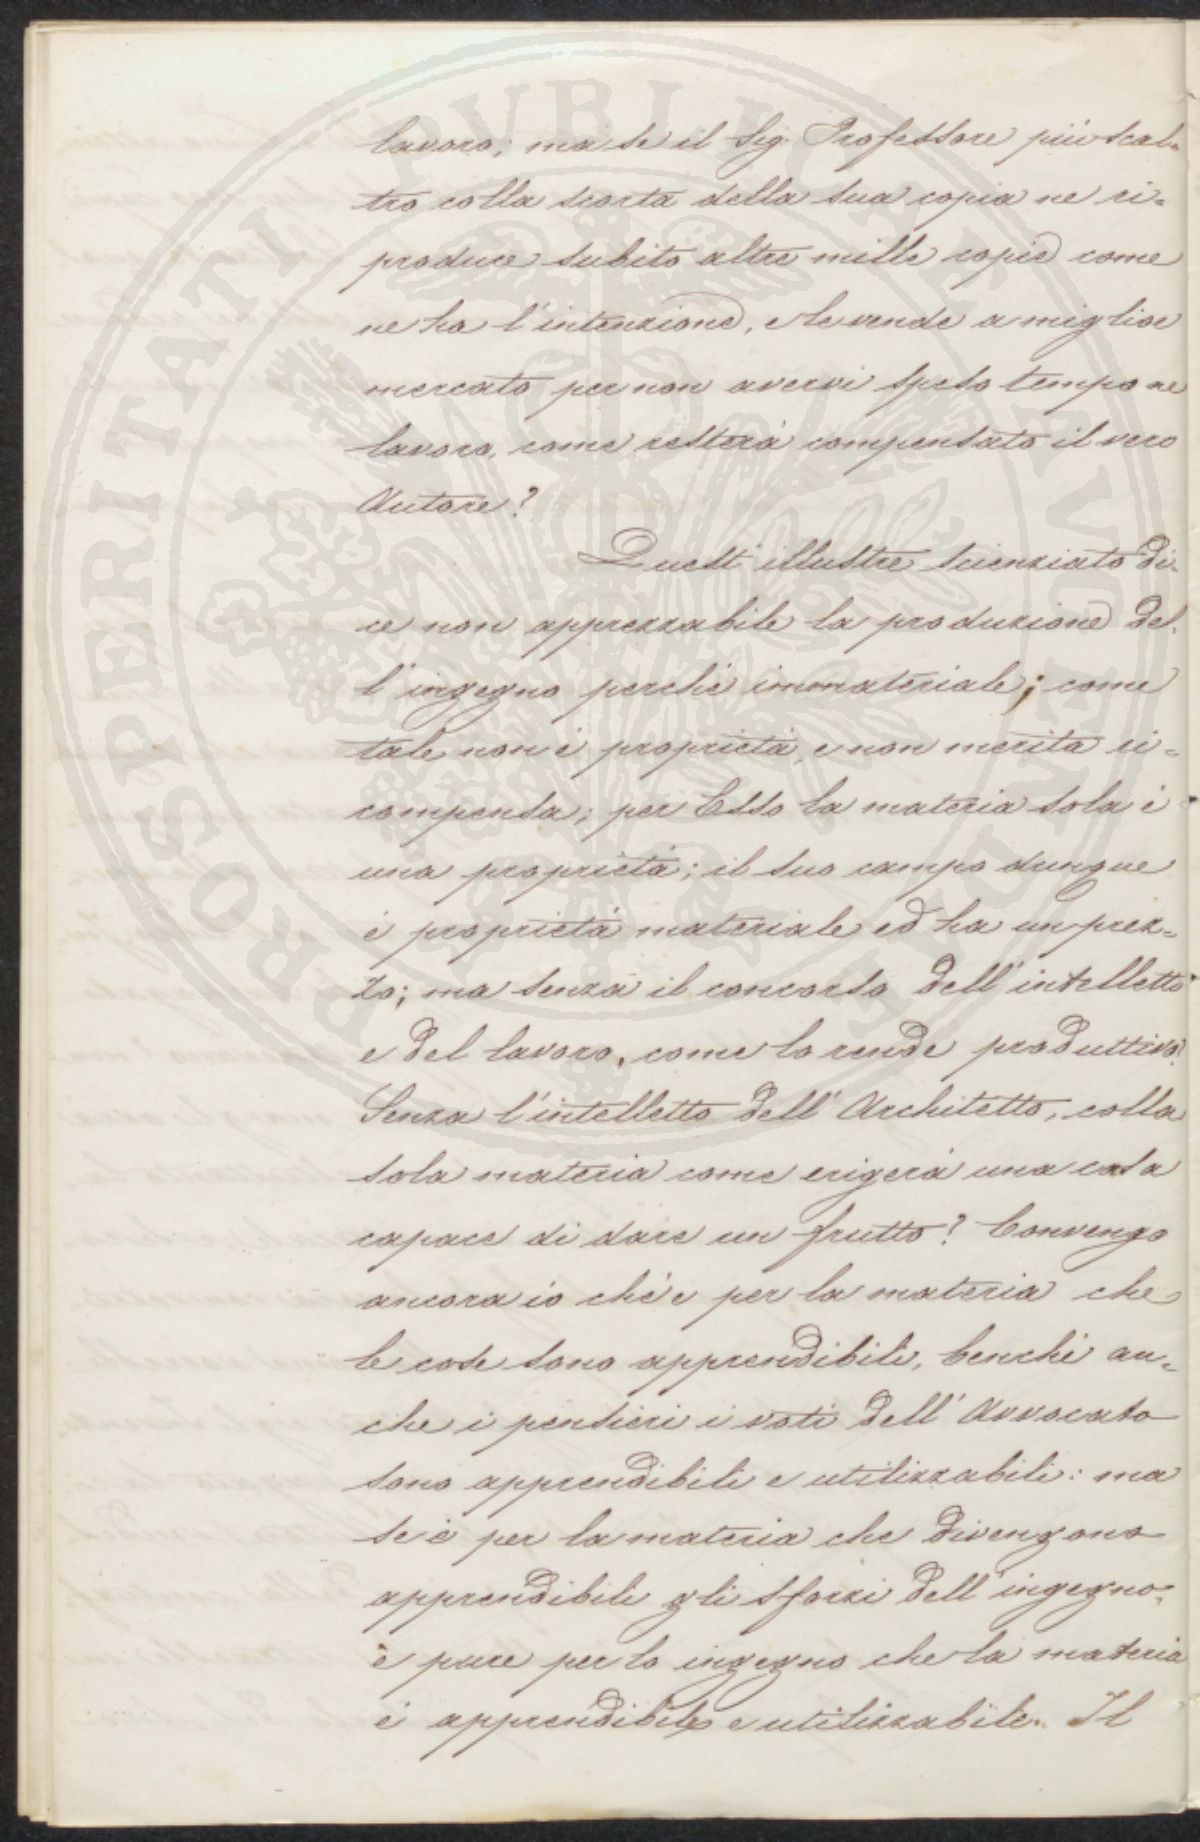 lavoro; ma se il Sig. Professore più scal=
tro colla scorta della sua copia ne ri=
produce subito altre mille copie come
ne ha l'intenzione, e le vende a miglior
mercato per non avervi speso tempo ne
lavoro, come resterà compensato il vero
Autore?
Quest' illustre scienziato di=
ce non apprezzabile la produzione del=
l'ingegno perché immateriale; come
tale non è proprietà, e non merita ri=
compensa; per Esso la materia sola è
una proprietà; il suo campo dunque
è proprietà materiale ed ha un prez=
zo; ma senza il concorso dell'intelletto
e del lavoro, come lo rende produttivo?
Senza l'intelletto dell' Architetto, colla
sola materia come erigerà una casa
capace di dare un frutto? Convengo
ancora io ch'è per la materia che
le cose sono apprendibili, benché an=
che i pensieri i voti dell' Avvocato
sono apprendibili e utilizzabili: ma
se è per la materia che divengono
apprendibili gli sforzi dell'ingegno,
è pure per lo ingegno che la materia
è apprendibile e utilizzabile. Il
PROSPERITATI PVBLICAE AVGENDAE